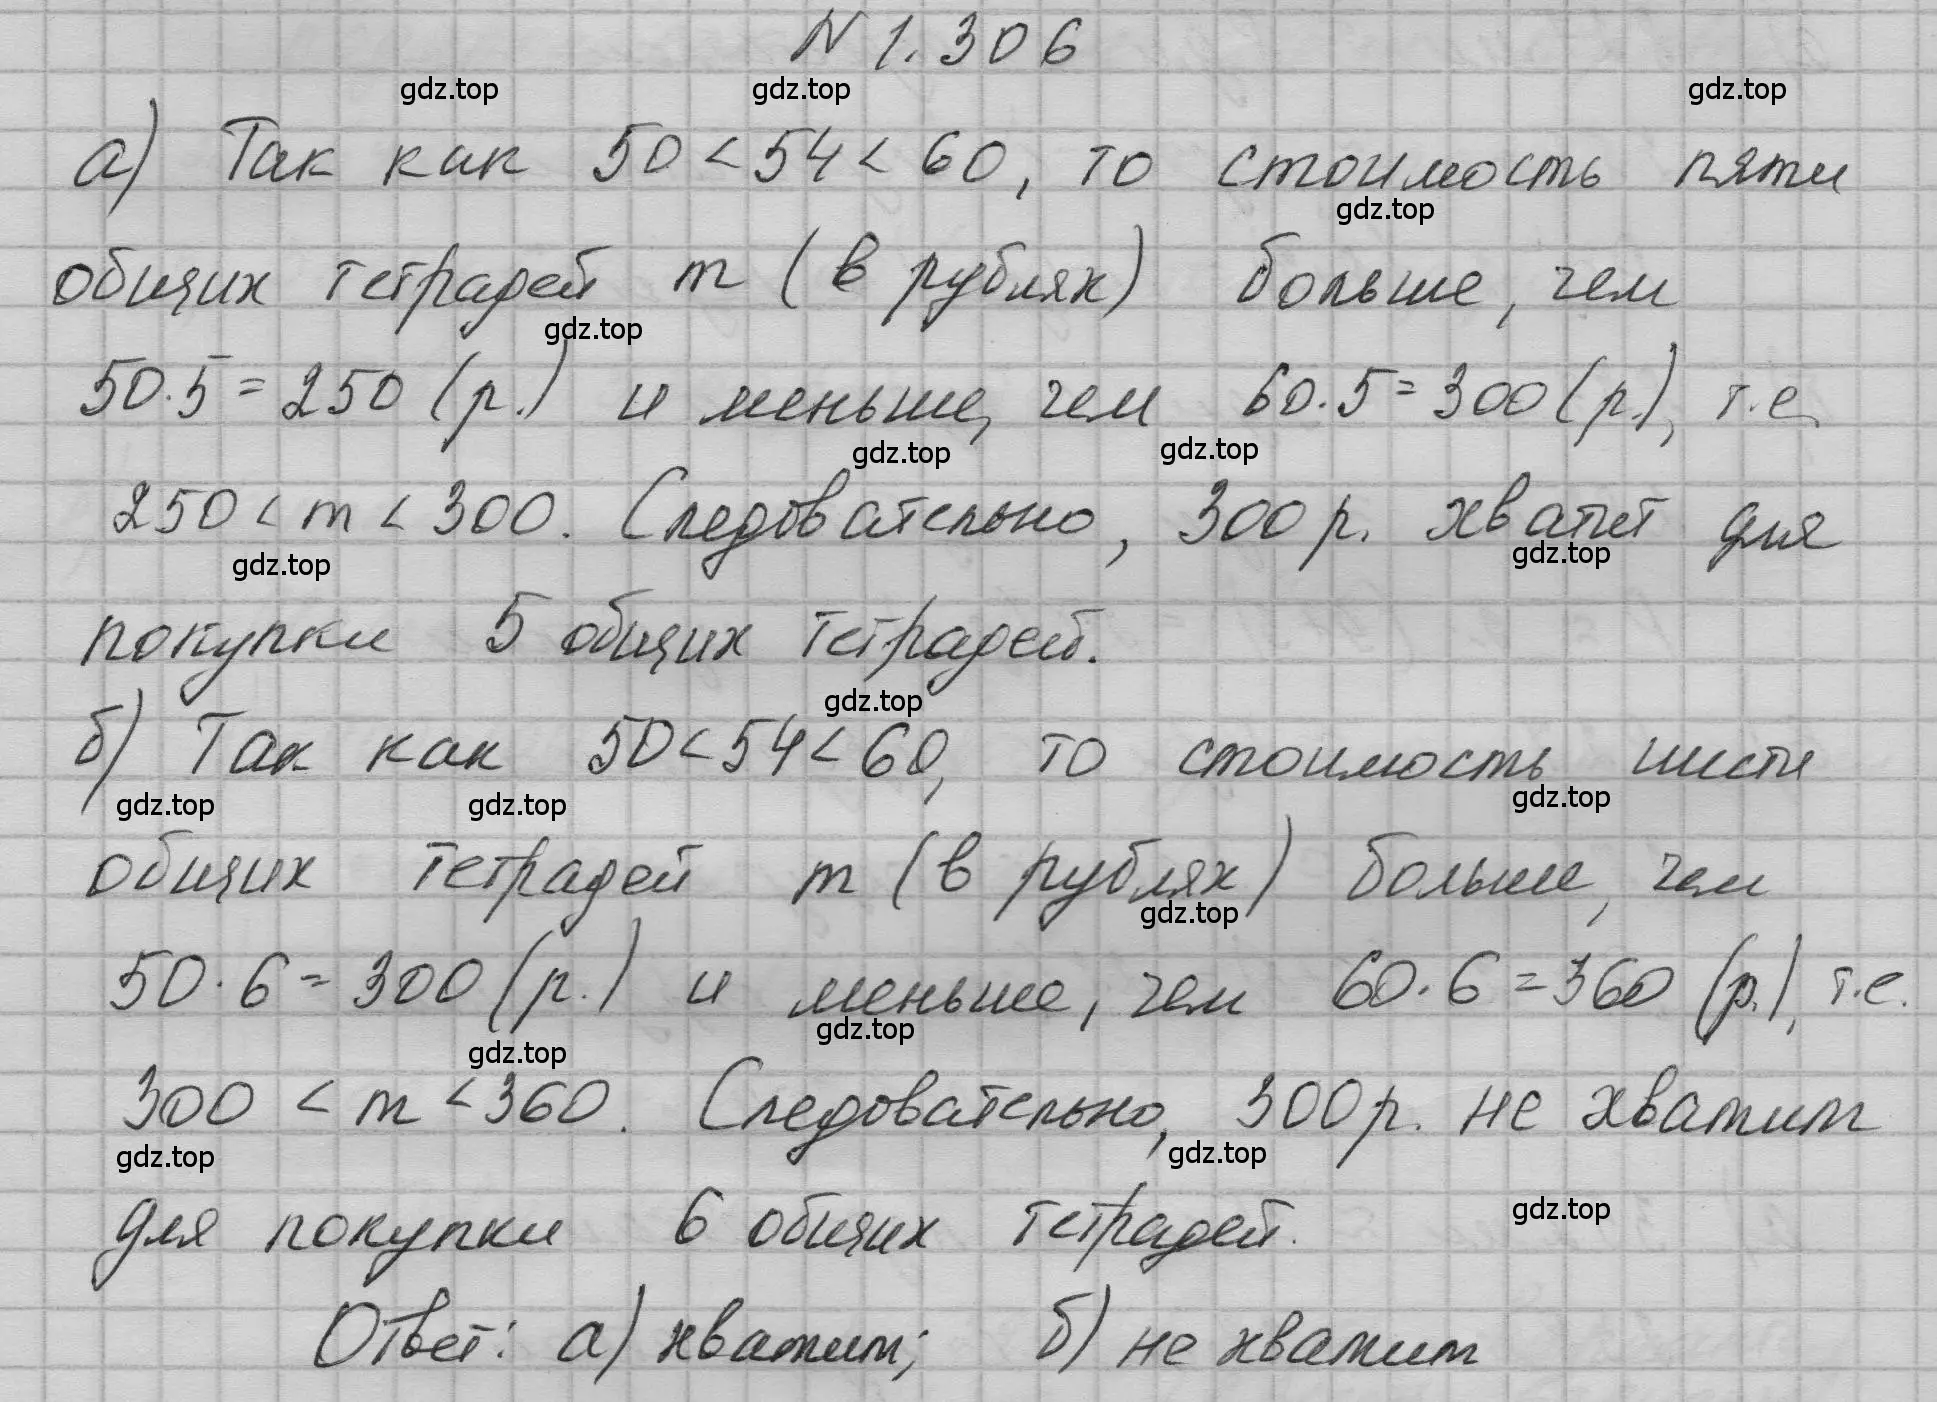 N 1.306
а) Так как 50 < 54 < 60, то стоимость пяти
общих тетрадей m (в рублях) больше, чем
50·5 = 250 (р.) и меньше, чем 60·5 = 300 (р.), т.е.
250 < m < 300. Следовательно, 300 р. хватит для
покупки 5 общих тетрадей.
б) Так как 50 < 54 < 60, то стоимость шести
общих тетрадей m (в рублях) больше, чем
50·6 = 300 (р.) и меньше, чем 60·6 = 360 (р.), т.е.
300 < m < 360. Следовательно, 300 р. не хватит
для покупки 6 общих тетрадей.
Ответ: а) хватит; б) не хватит
gdz.top gdz.top gdz.top
gdz.top
gdz.top
gdz.top gdz.top
gdz.top gdz.top
gdz.top
gdz.top gdz.top gdz.top
gdz.top
gdz.top gdz.top
gdz.top gdz.top
gdz.top